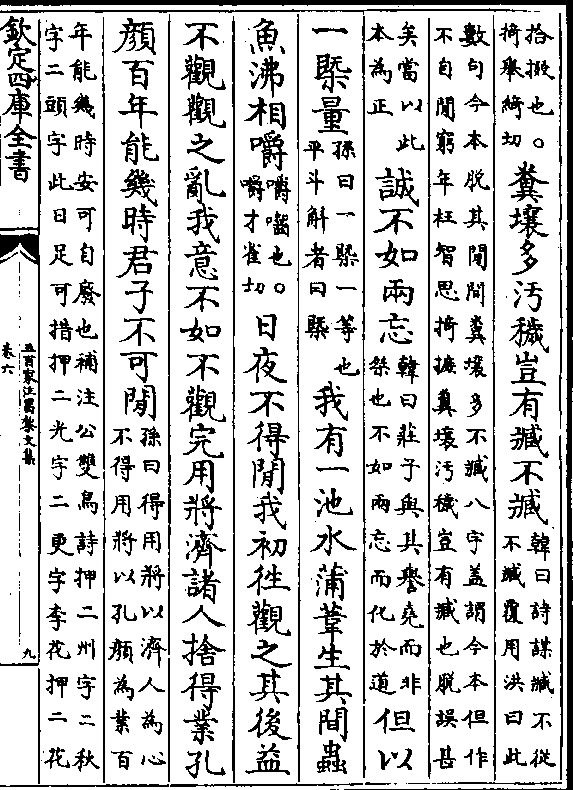 拾掇也。
掎舉綺切
糞壤多汚穢豈有臧不臧
韓曰詩謀臧不從
不臧覆用洪曰此
數句今本脫其閒閒糞壤多不臧八字蓋謂今本但作
不自閒窮年枉智思掎摭糞壤汚穢豈有臧也脫誤甚
矣當以此
本為正
誠不如兩忘
韓曰莊子與其譽堯而非
桀也不如兩忘而化於道
但以
一槩量
孫曰一槩一等也
平斗斛者曰槩
我有一池水蒲葦生其間蟲
魚沸相嚼
嚼囓也。
嚼才雀切
日夜不得閒我初徃觀之其後益
不觀觀之亂我意不如不觀完用將濟諸人捨得業孔
顏百年能幾時君子不可閒
孫曰得用將以濟人為心
不得用將以孔顏為業百
年能幾時安可自廢也補注公雙鳥詩押二州字二秋
字二頭字此日足可措押二光字二更字李花押二花
欽定四庫全書
五百家注昌黎文集
卷六
九